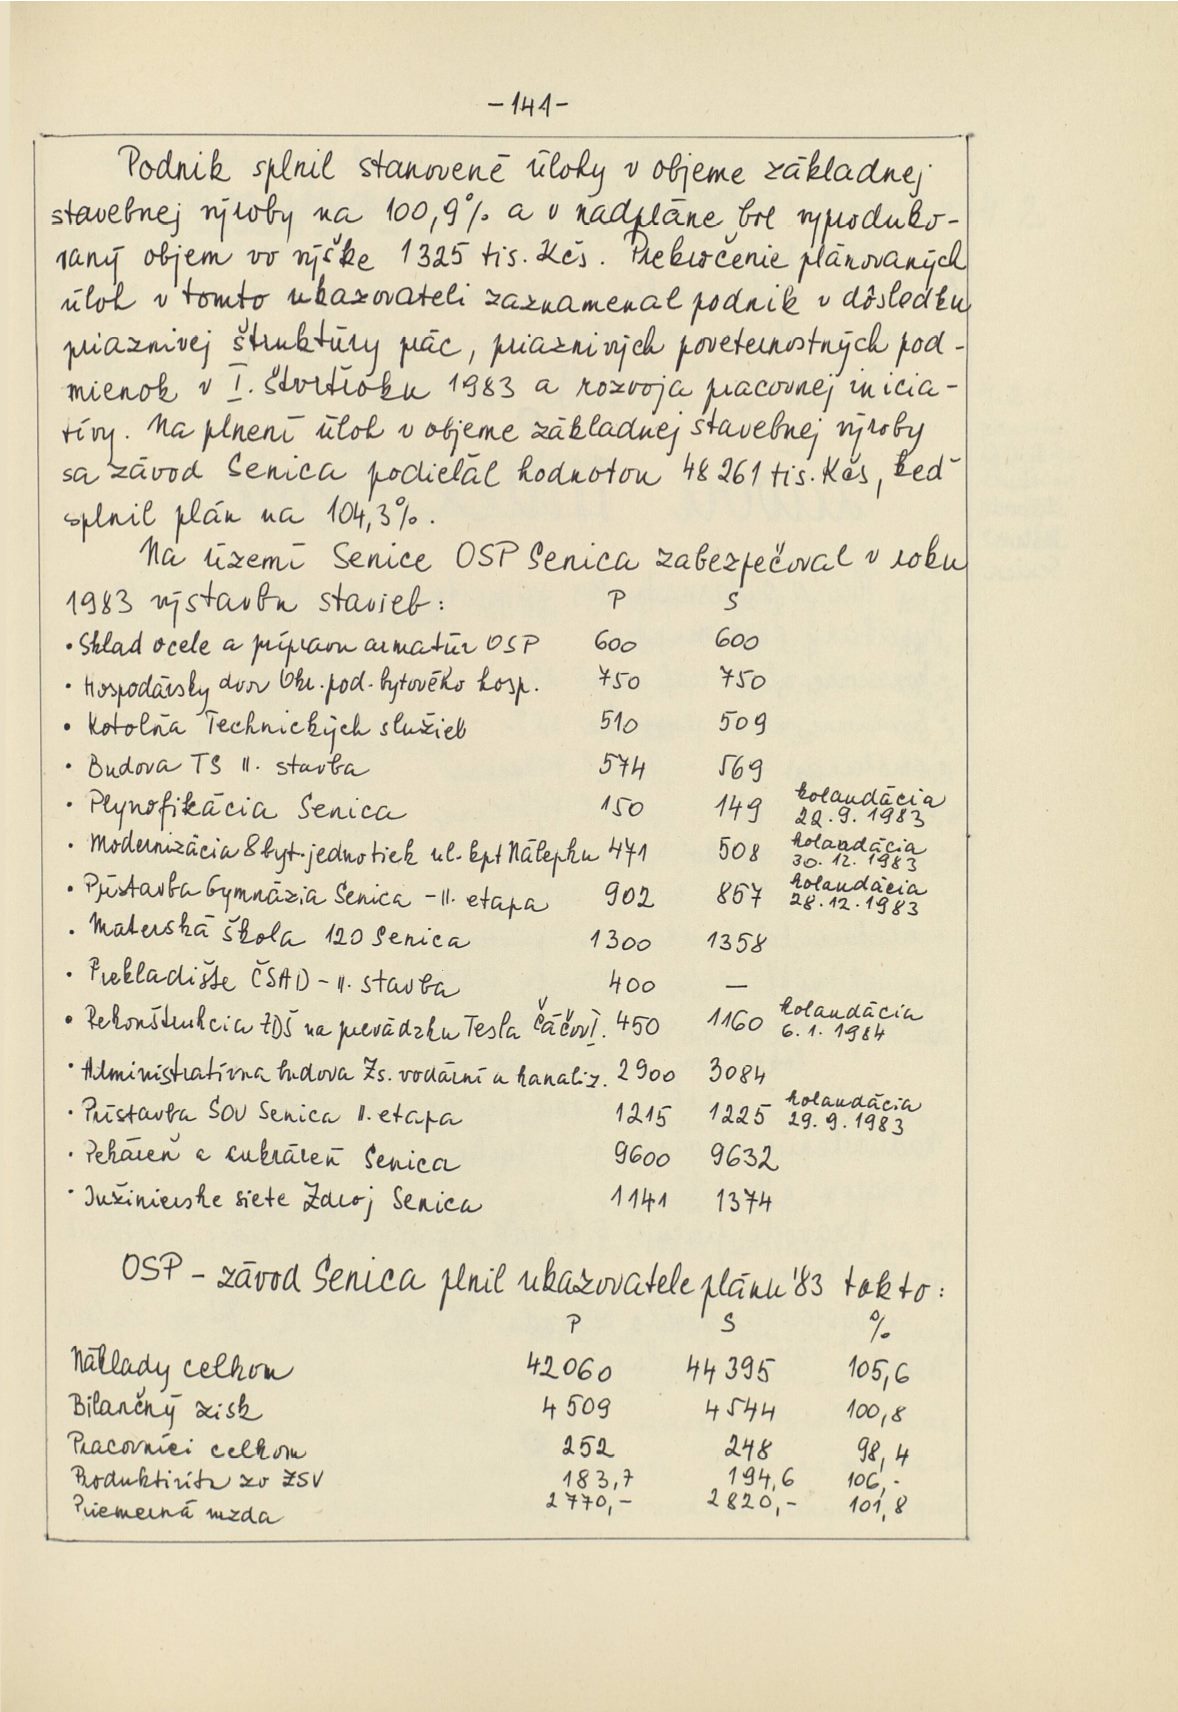 -141-
Podnik splnil stanovené úlohy v objeme základnej
stavebnej výroby na 100,9% a v nadpláne bol vyproduko-
vaný objem vo výške 1325 tis. Kčs. Prekročenie plánovaných
úloh v tomto ukazovateli zaznamenal podnik v dôsledku
priaznivej štruktúry prác, priaznivých poveternostných pod-
mienok v I. štvrťroku 1983 a rozvoja pracovnej inicia-
tívy. Na plnení úloh v objeme základnej stavebnej výroby
sa závod Senica podieľal hodnotou 48 261 tis. Kčs, keď
splnil plán na 104,3%.
Na území Senice OSP Senica zabezpečoval v roku
1983 výstavbu stavieb: P S
• Sklad ocele a prípravu armatúr OSP 600 600
• Hospodársky dvor Okr. pod. bytového hosp. 750 750
• Kotolňa Technických služieb 510 509
• Budova TS II. stavba 574 569
• Plynofikácia Senica 150 149 kolaudácia 22.9.1983
• Modernizácia 8 byt. jednotiek ul. kpt Nálepku 471 508 kolaudácia 30.12.1983
• Prístavba Gymnázia Senica - II. etapa 902 857 kolaudácia 28.12.1983
• Materská škola 120 Senica 1300 1358
• Prekladište ČSAD - II. stavba 400 —
• Rekonštrukcia ZDŠ na prevádzku Tesla Čáčov I. 450 1160 kolaudácia 6.1.1984
• Administratívna budova Zs. vodární a kanaliz. 2900 3084
• Prístavba SOU Senica II. etapa 1215 1225 kolaudácia 29.9.1983
• Pekáreň a cukráreň Senica 9600 9632
• Inžinierske siete Zdroj Senica 1141 1374
OSP - závod Senica plnil ukazovatele plánu '83 takto:
P S %
Náklady celkom 42060 44395 105,6
Bilančný zisk 4509 4544 100,8
Pracovníci celkom 252 248 98,4
Produktivita zo ZSV 183,7 194,6 106,-
Priemerná mzda 2770,- 2820,- 101,8